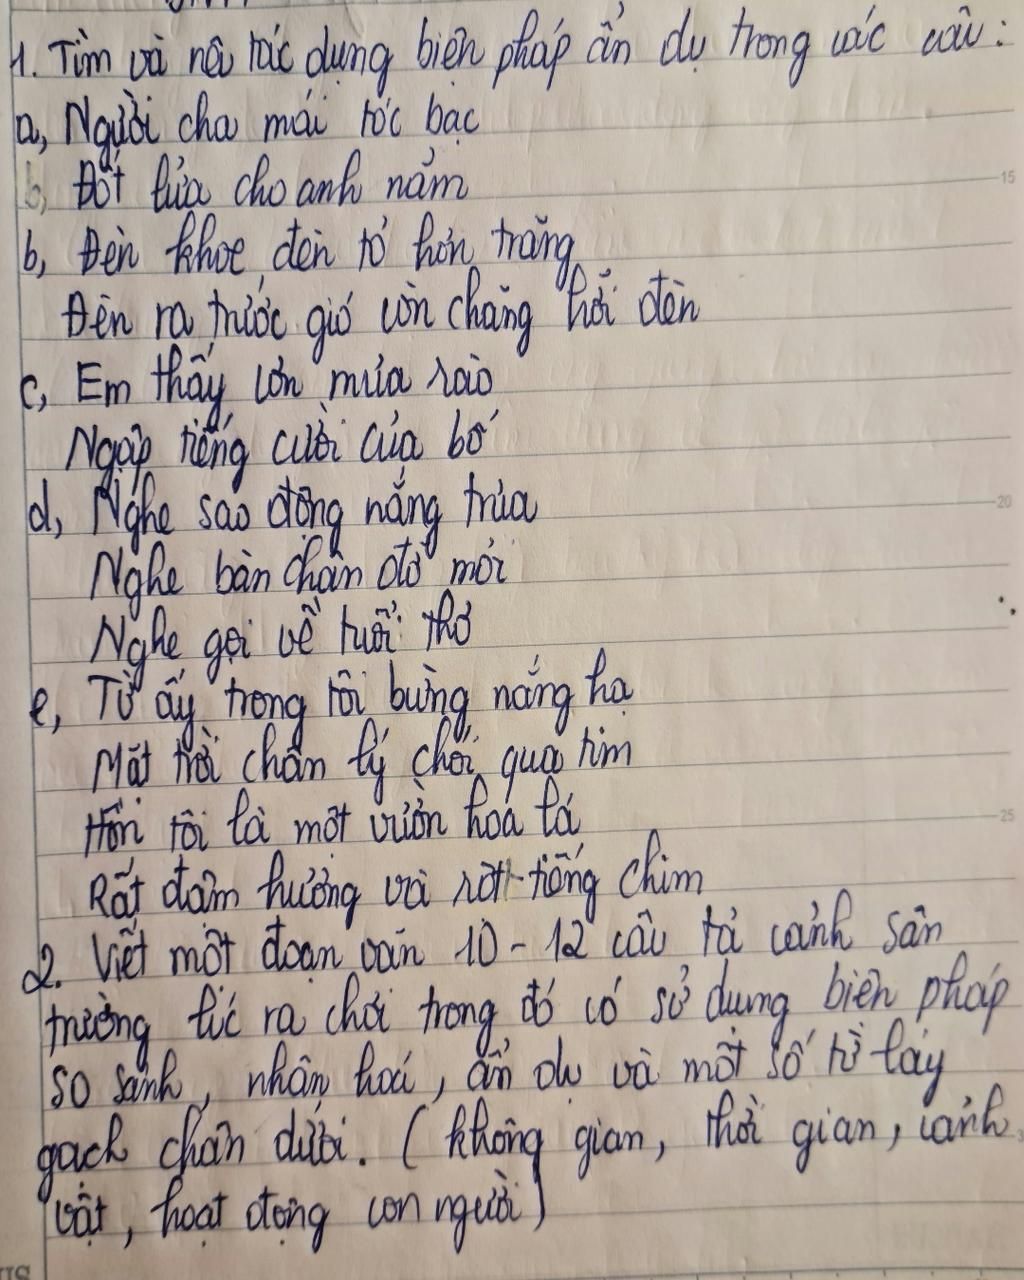 1. Tìm và nêu tác dụng biện pháp ẩn dụ trong các câu:
a, Người cha mái tóc bạc
b, Đốt lửa cho anh nằm
b, Đèn khoe đèn tỏ hơn trăng
Đèn ra trước gió còn chăng hỡi đèn
c, Em thấy cơn mưa rào
Ngập tiếng cười của bố
d, Nghe sao động nắng trưa
Nghe bàn chân đỡ mỏi
Nghe gọi về tuổi thơ
e, Từ ấy trong tôi bừng nắng hạ
Mặt trời chân lý chói qua tim
Hồn tôi là một vườn hoa lá
Rất đậm hương và rộn tiếng chim
2. Viết một đoạn văn 10 - 12 câu tả cảnh sân
trường lúc ra chơi trong đó có sử dụng biện pháp
so sánh, nhân hoá, ẩn dụ và một số từ láy
gạch chân dưới. (không gian, thời gian, cảnh
vật, hoạt động con người)